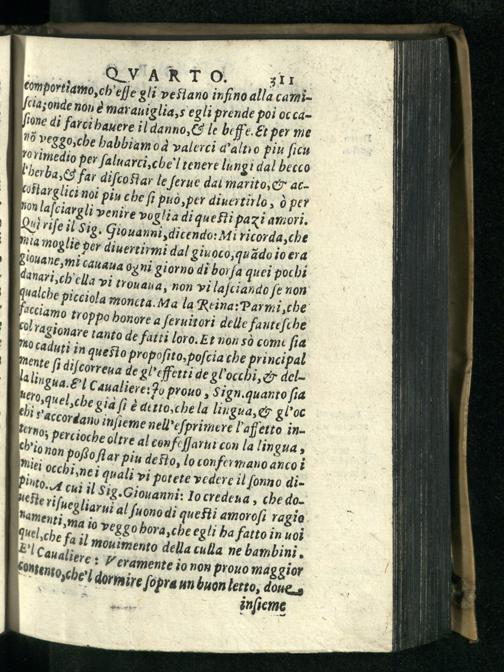 QVARTO. 311
comportiamo, ch'esse gli vestano infino alla cami-
scia; onde non è marauiglia, s'egli prende poi occa-
sione di farci hauere il danno, & le beffe. Et per me
nō veggo, che habbiamo à valerci d'altro piu sicu
ro rimedio per saluarci, che'l tenere lungi dal becco
l'herba, & far discostar le serue dal marito, & ac-
costarglici noi piu che si può, per diuertirlo, ò per
non lasciargli venire voglia di questi pazi amori.
Quì rise il Sig. Giouanni, dicendo: Mi ricorda, che
mia moglie per diuertirmi dal giuoco, quādo io era
giouane, mi cauaua ogni giorno di borsa quei pochi
danari, ch'ella vi trouaua, non vi lasciando se non
qualche picciola moneta. Ma la Reina: Parmi, che
facciamo troppo honore a seruitori delle fantesche
col ragionare tanto de fatti loro. Et non sò come sia
mo caduti in questo proposito, poscia che principal
mente si discorreua de gl'effetti de gl'occhi, & del-
la lingua. E'l Caualiere: Io prouo, Sign. quanto sia
uero, quel, che già si è detto, che la lingua, & gl'oc
chi s'accordano insieme nell'esprimere l'affetto in-
terno; percioche oltre al confessarui con la lingua,
ch'io non posso star piu desto, lo confermano anco i
miei occhi, nei quali vi potete vedere il sonno di-
pinto. A cui il Sig. Giouanni: Io credeua, che do-
ueste risuegliarui al suono di questi amorosi ragio
namenti, ma io veggo hora, che egli ha fatto in uoi
quel, che fa il mouimento della culla ne bambini.
E'l Caualiere: Veramente io non prouo maggior
contento, che'l dormire sopra un buon letto, doue
insieme